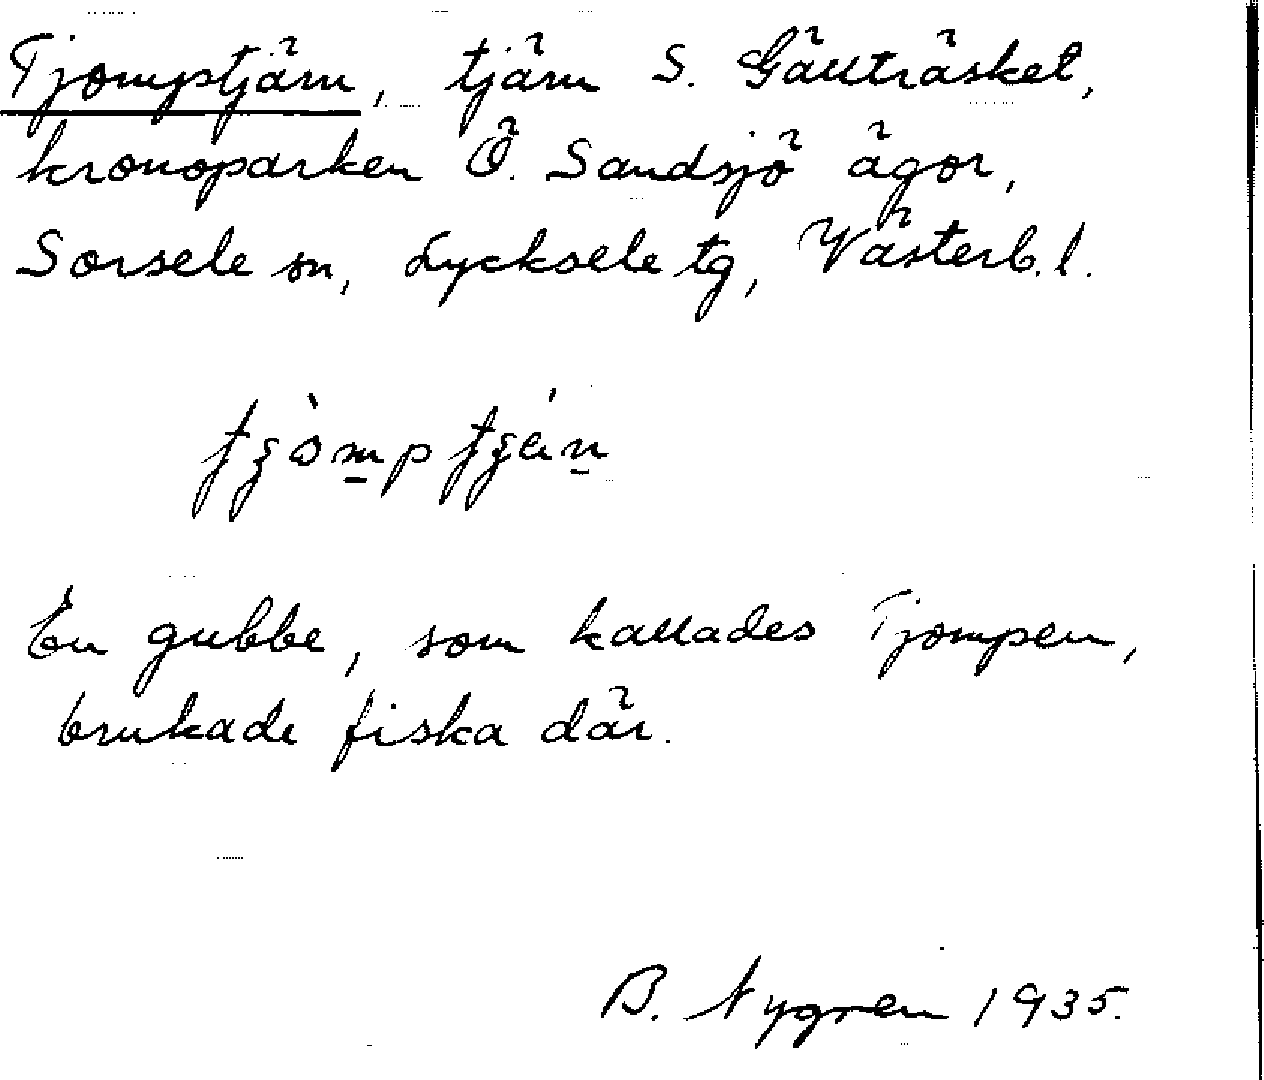 Tjomptjärn, tjärn S. Gällträsket,
kronoparken Ö. Sandsjö ägor,
Sorsele sn, Lycksele tg, Västerb. l.
En gubbe, som kallades Tjompen,
brukade fiska där.
B. Nygren 1935.